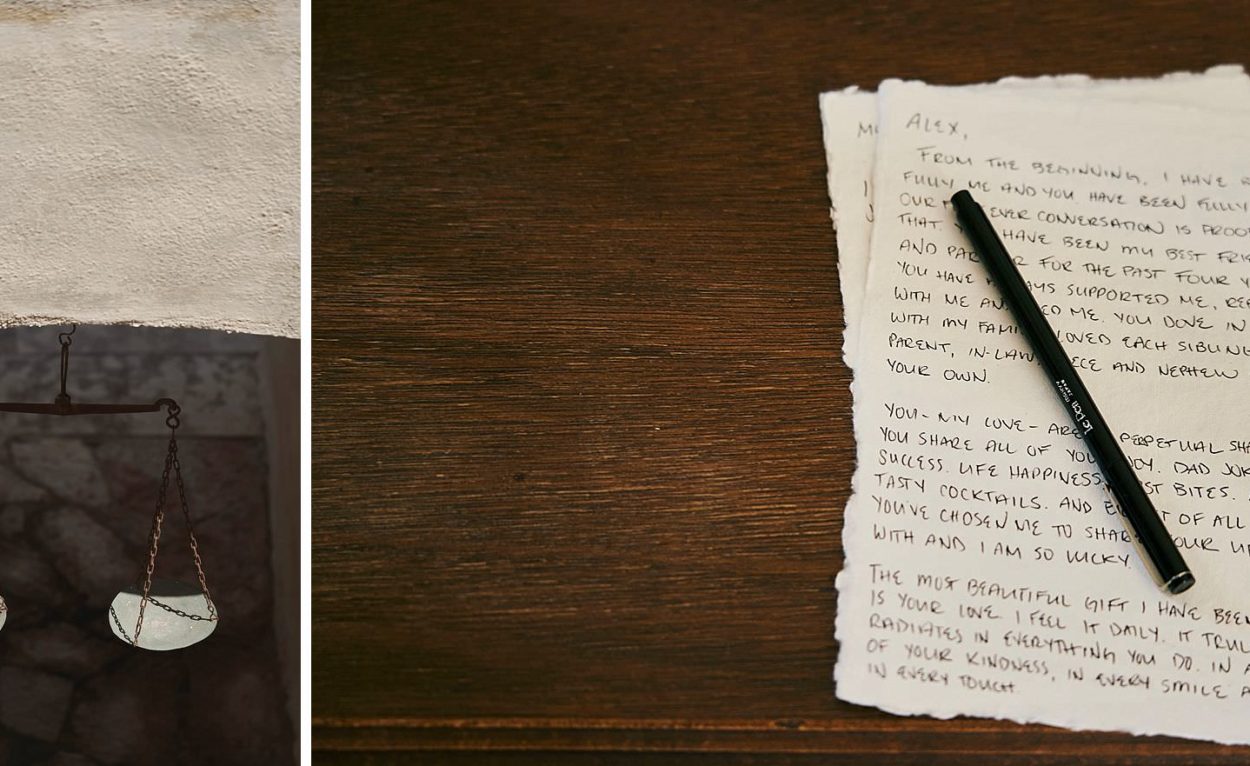 ALEX,
FROM THE BEGINNING, I HAVE
FULLY ME AND YOU HAVE BEEN FULLY
OUR EVER CONVERSATION IS PROOF
THAT. HAVE BEEN MY BEST
AND FOR THE PAST FOUR
YOU HAVE SUPPORTED ME,
WITH ME ME. YOU DOVE IN
WITH MY LOVED EACH
PARENT, AND NEPHEW
YOUR OWN.
YOU- MY LOVE- PERPETUAL
YOU SHARE ALL OF DAD
SUCCESS. LIFE HAPPINESS. BITES.
TASTY COCKTAILS. AND OF ALL
YOU'VE CHOSEN ME TO YOUR
WITH AND I AM SO LUCKY.
THE MOST BEAUTIFUL GIFT I HAVE BEEN
IS YOUR LOVE. I FEEL IT DAILY. IT
RADIATES IN EVERYTHING YOU DO. IN
OF YOUR KINDNESS, IN EVERY SMILE
IN EVERY TOUCH.
Le Pen
JAPAN